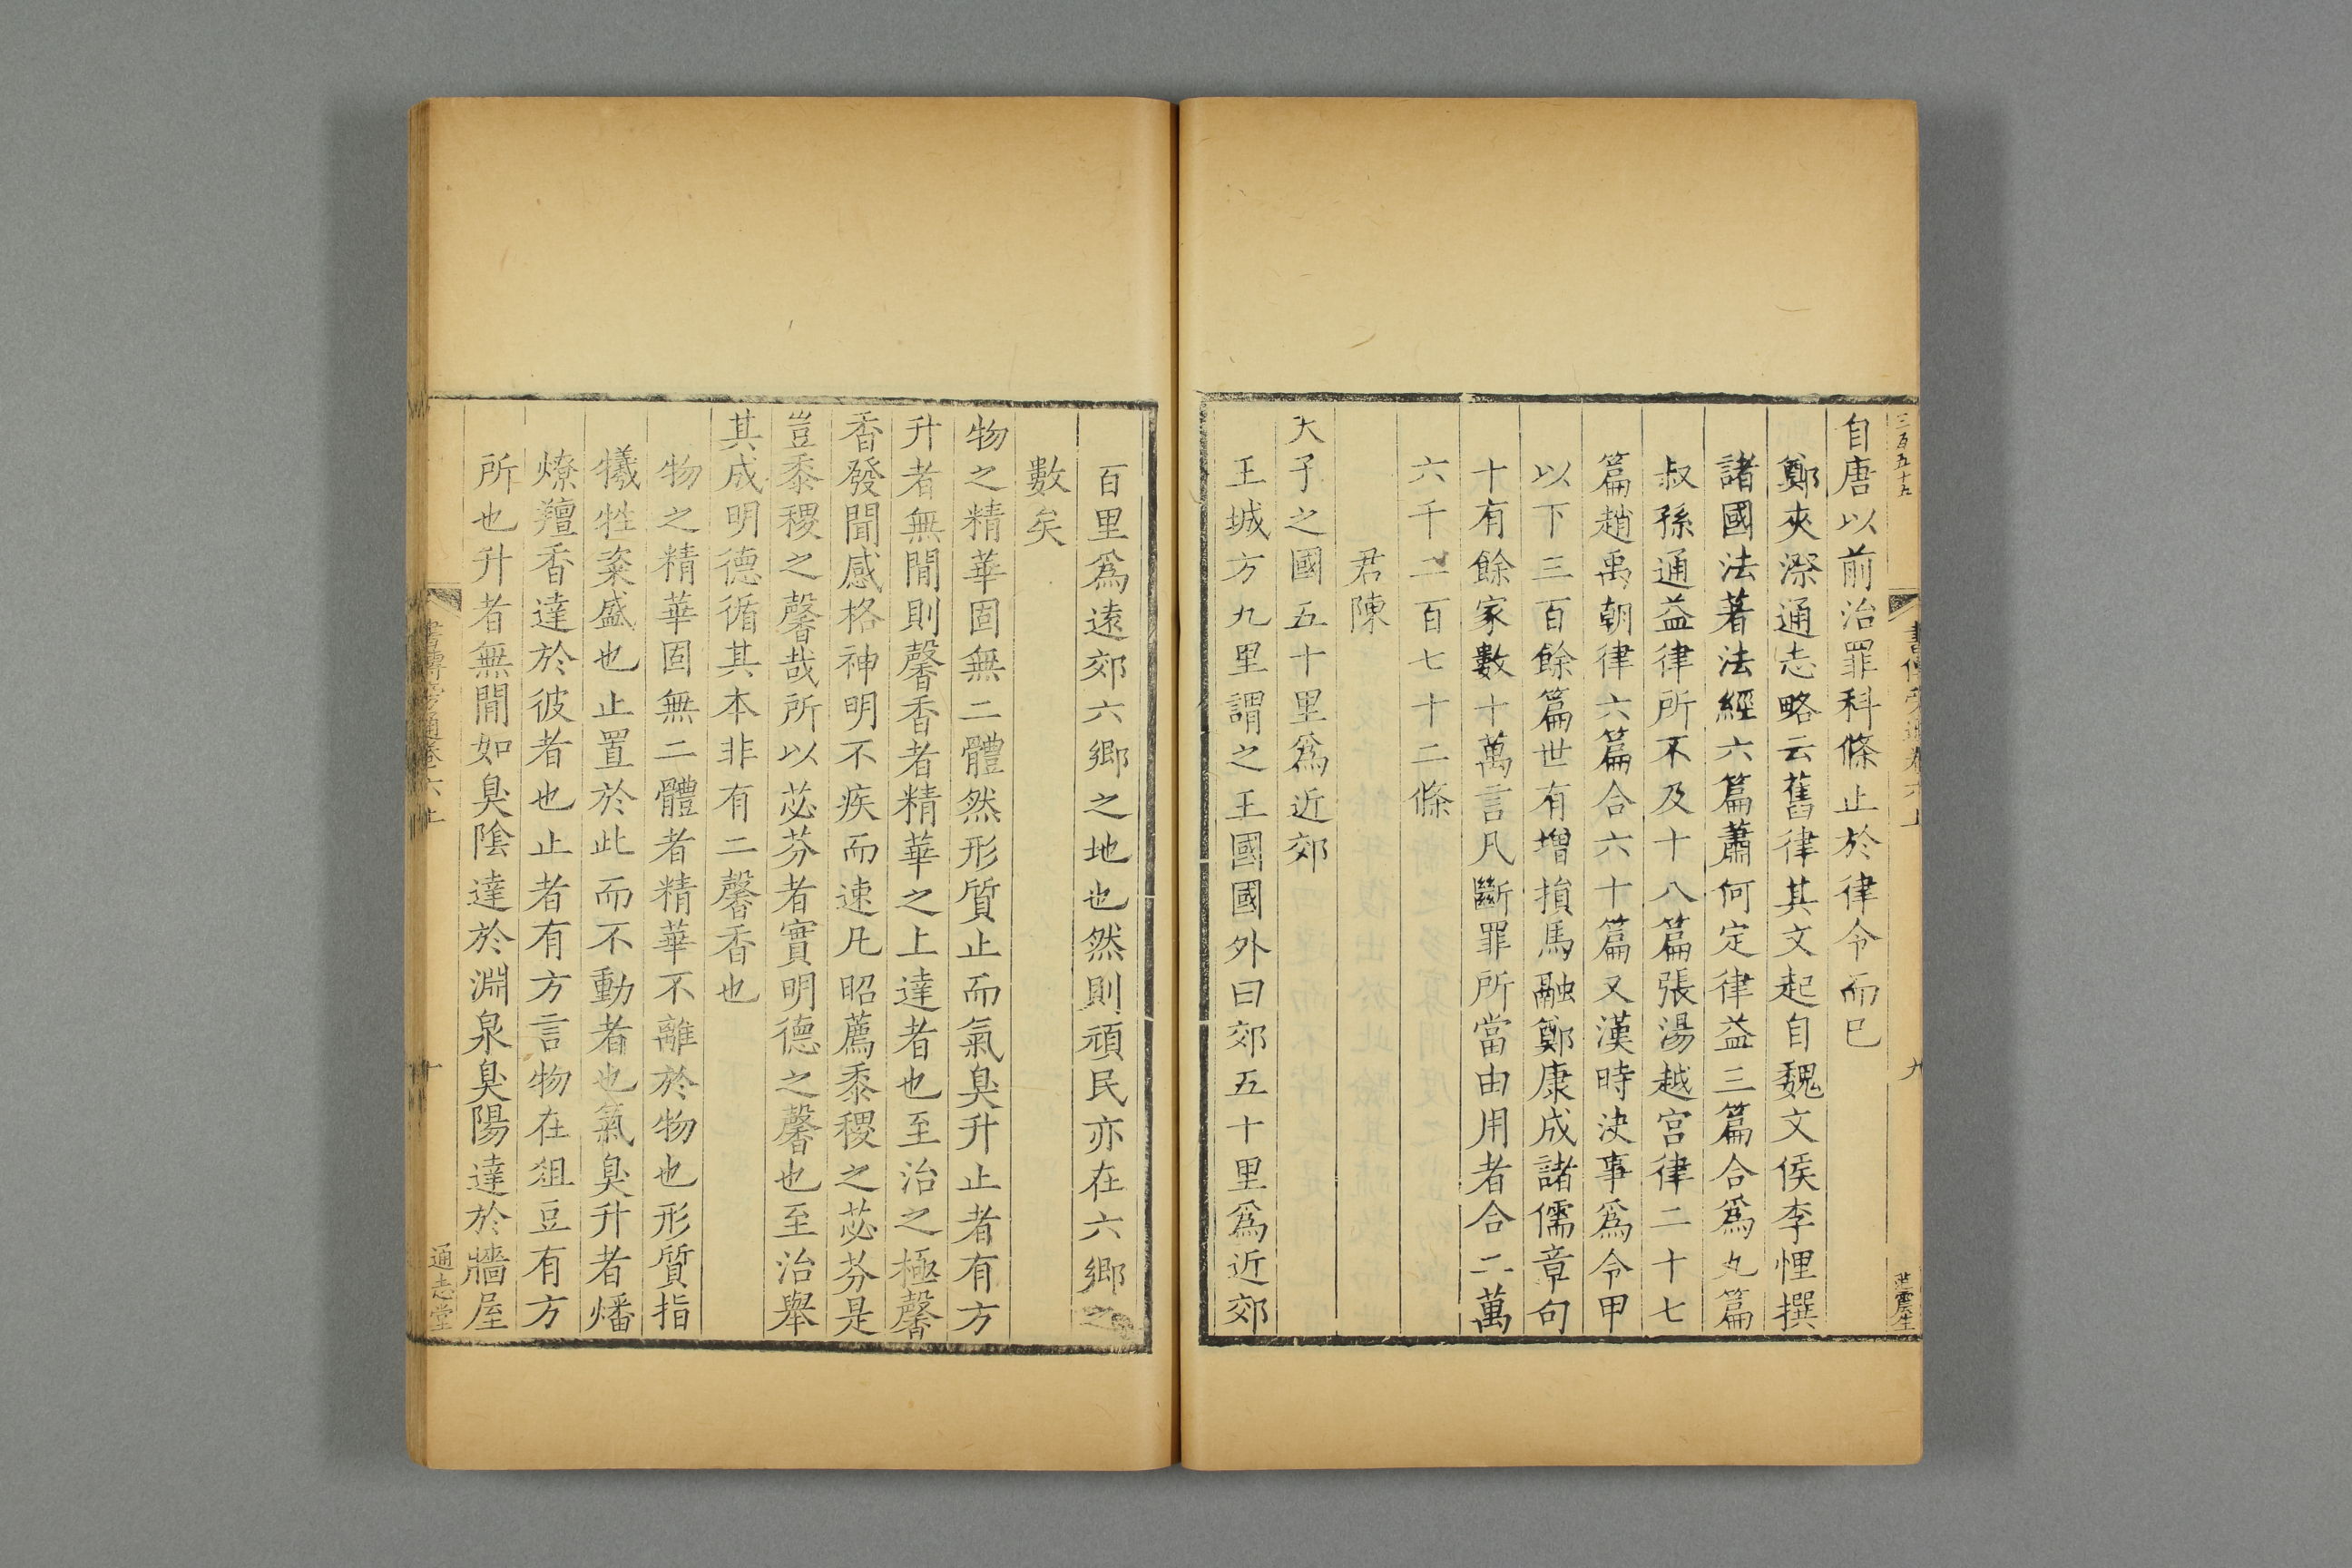 三百五十九
自唐以前治罪科條止於律令而已
鄭夾漈通志略云舊律其文起自魏文侯李悝撰
諸國法著法經六篇蕭何定律益三篇合爲九篇
叔孫通益律所不及十八篇張湯越宮律二十七
篇趙禹朝律六篇合六十篇又漢時決事爲令甲
以下三百餘篇世有增損馬融鄭康成諸儒章句
十有餘家數十萬言凡斷罪所當由用者合二萬
六千二百七十二條
君陳
天子之國五十里爲近郊
王城方九里謂之王國國外曰郊五十里爲近郊
百里爲遠郊六鄉之地也然則頑民亦在六鄉之
數矣
物之精華固無二體然形質止而氣臭升止者有方
升者無閒則馨香者精華之上達者也至治之極馨
香發聞感格神明不疾而速凡昭薦黍稷之苾芬是
豈黍稷之馨哉所以苾芬者實明德之馨也至治舉
其成明德循其本非有二馨香也
物之精華固無二體者精華不離於物也形質指
犧牲粢盛也止置於此而不動者也氣臭升者燔
燎羶香達於彼者也止者有方言物在俎豆有方
所也升者無閒如臭陰達於淵泉臭陽達於牆屋
書傳旁通卷六上
十
通志堂